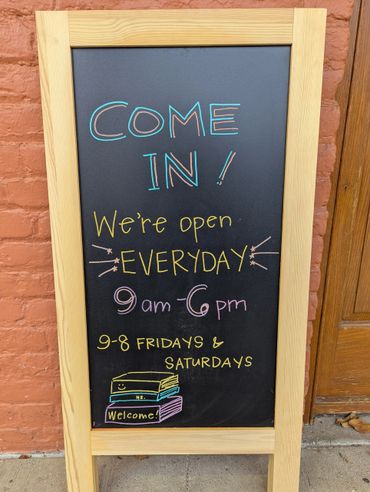 COME
IN!
We're open
EVERYDAY
9am-6pm
9-8 FRIDAYS &
SATURDAYS
Welcome!